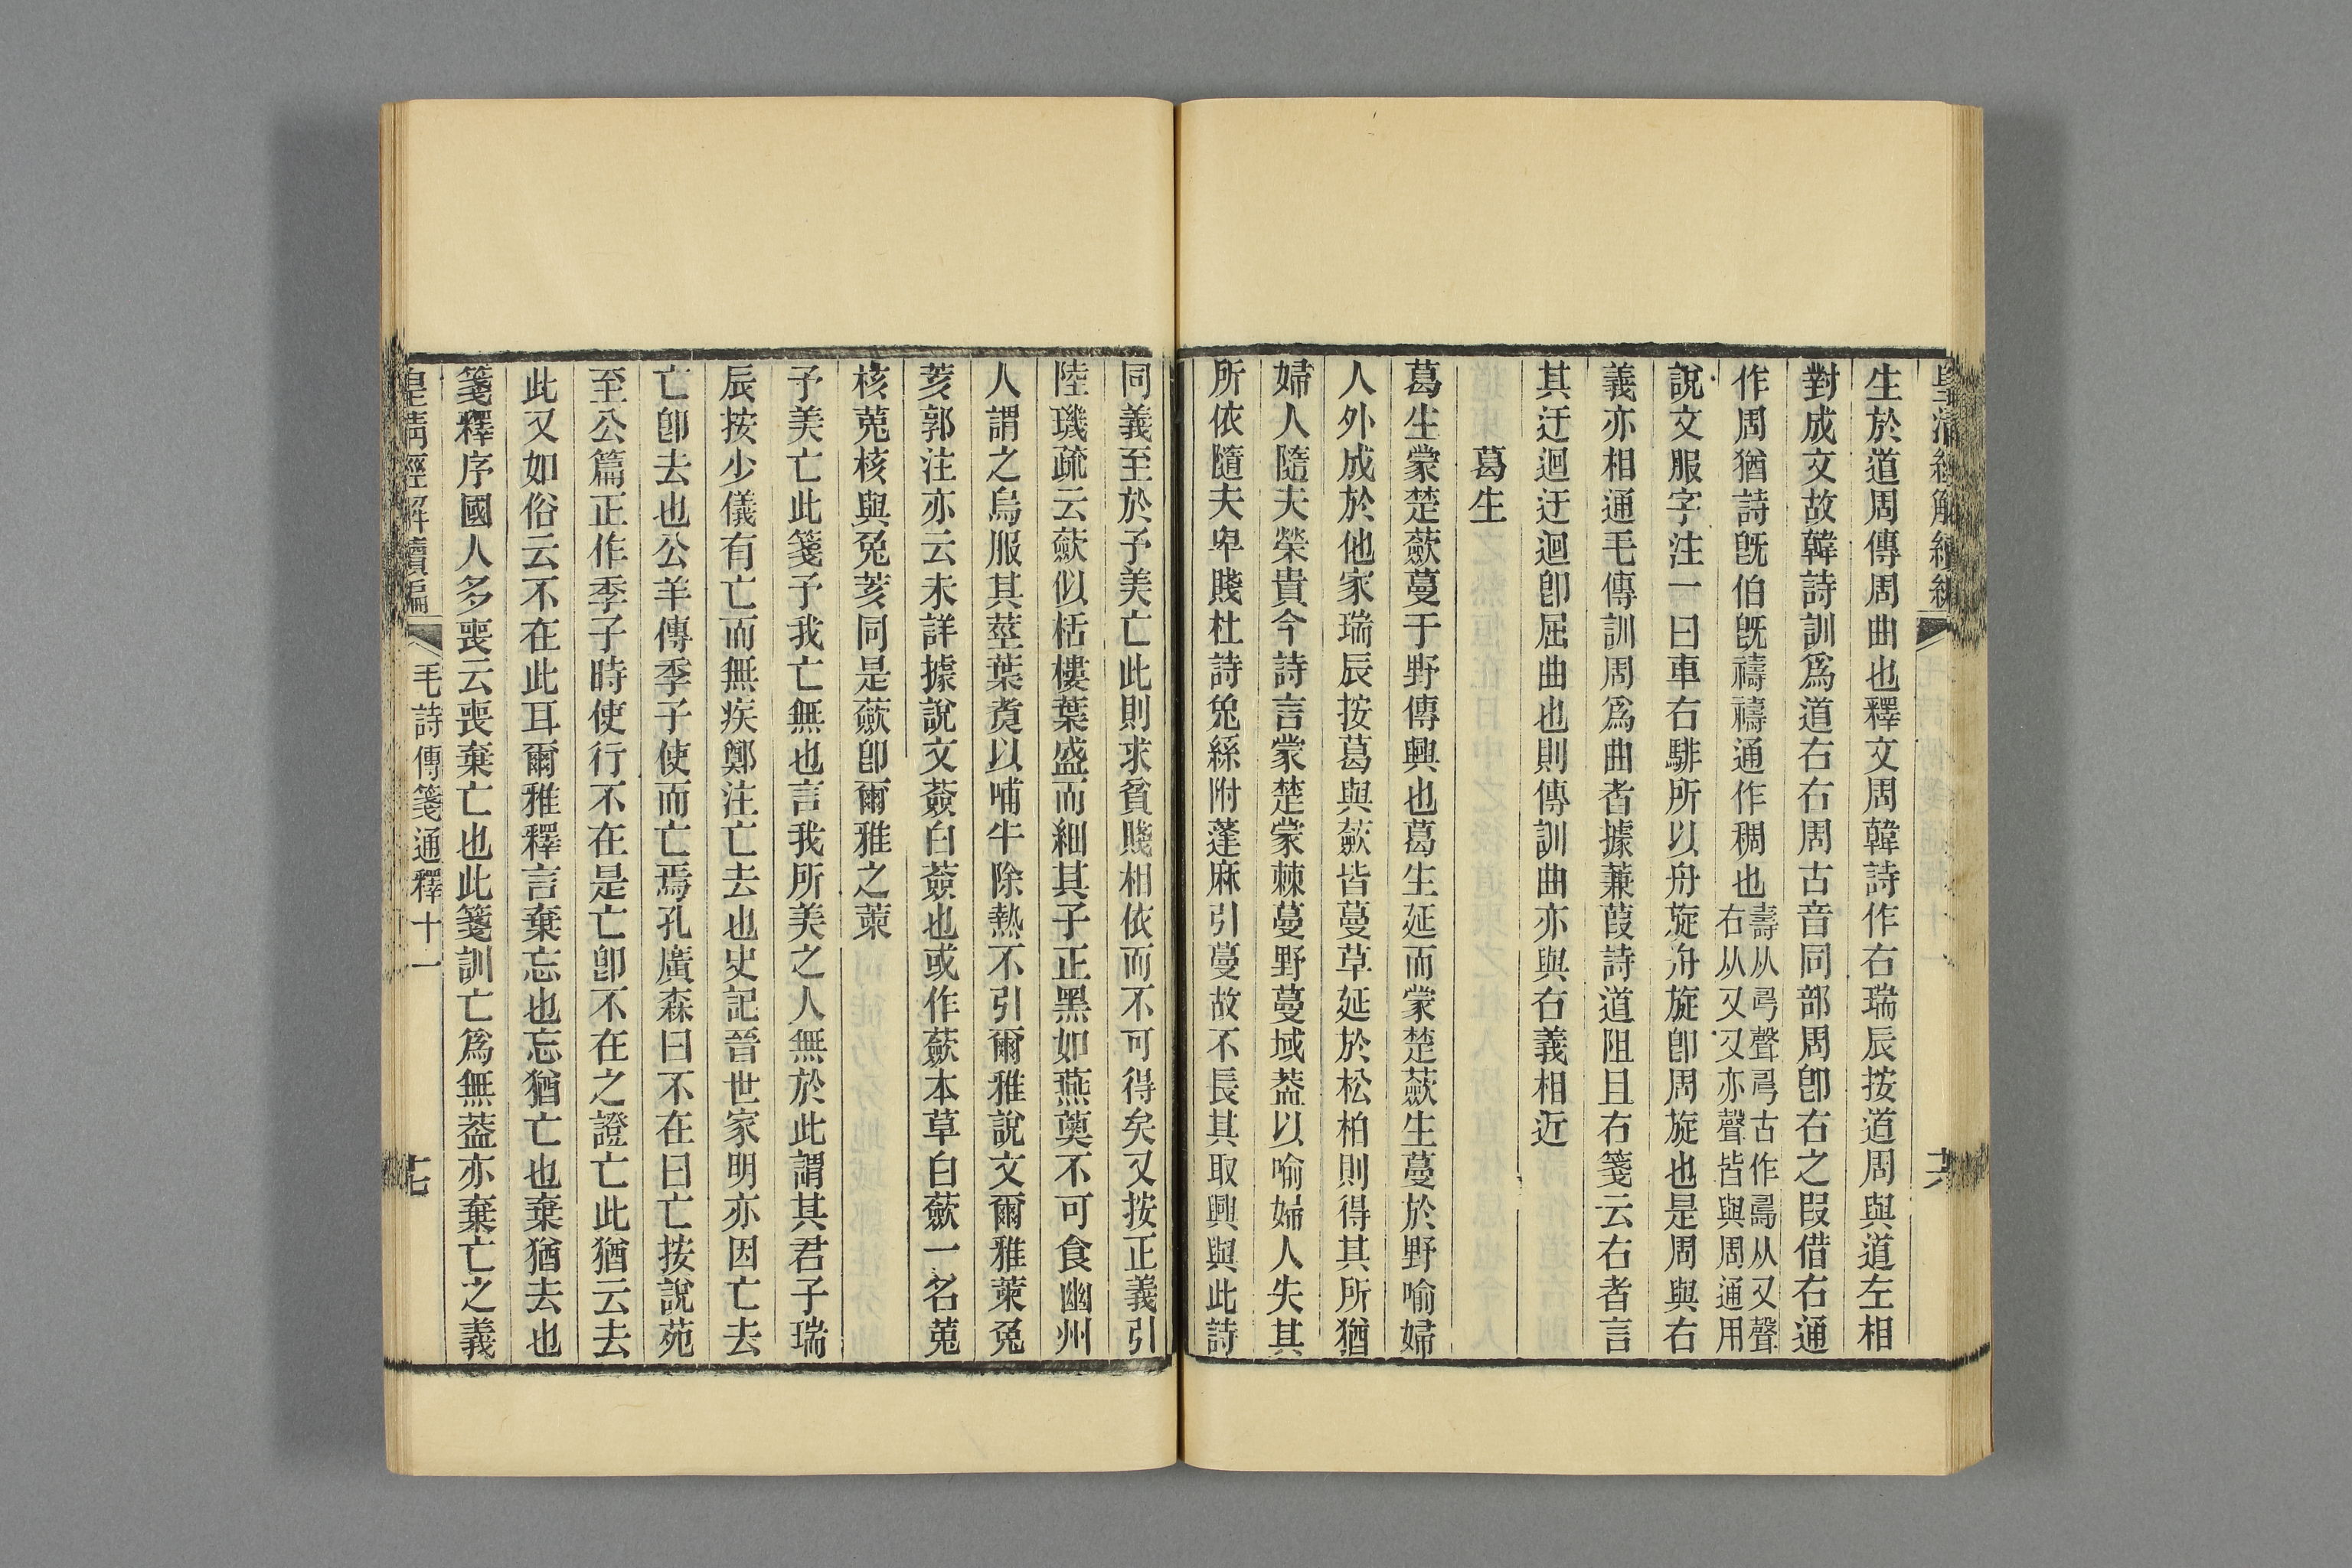 皇清經解續編
生於道周傳周曲也釋文周韓詩作右瑞辰按道周與道左相
對成文故韓詩訓爲道右右周古音同部周卽右之叚借右通
作周猶詩旣伯旣禱禱通作稠也
壽从𠷎聲𠷎古作𠃬从又聲
右从又又亦聲皆與周通用
說文服字注一曰車右騑所以舟旋舟旋卽周旋也是周與右
義亦相通毛傳訓周爲曲者據蒹葭詩道阻且右箋云右者言
其迂迴迂迴卽屈曲也則傳訓曲亦與右義相近
葛生
葛生蒙楚蘞蔓于野傳興也葛生延而蒙楚蘞生蔓於野喻婦
人外成於他家瑞辰按葛與蘞皆蔓草延於松柏則得其所猶
婦人隨夫榮貴今詩言蒙楚蒙棘蔓野蔓域葢以喻婦人失其
所依隨夫卑賤杜詩兔絲附蓬麻引蔓故不長其取興與此詩
同義至於予美亡此則求貧賤相依而不可得矣又按正義引
陸璣疏云蘞似栝樓葉盛而細其子正黑如燕薁不可食幽州
人謂之烏服其莖葉煑以哺牛除熱不引爾雅說文爾雅萰菟
荄郭注亦云未詳據說文薟白薟也或作蘞本草白蘞一名菟
核菟核與兔荄同是蘞卽爾雅之萰
予美亡此箋予我亡無也言我所美之人無於此謂其君子瑞
辰按少儀有亡而無疾鄭注亡去也史記晉世家明亦因亡去
亡卽去也公羊傳季子使而亡焉孔廣森曰不在曰亡按說苑
至公篇正作季子時使行不在是亡卽不在之證亡此猶云去
此又如俗云不在此耳爾雅釋言棄忘也忘猶亡也棄猶去也
箋釋序國人多喪云喪棄亡也此箋訓亡爲無葢亦棄亡之義
皇清經解續編
毛詩傳箋通釋十一